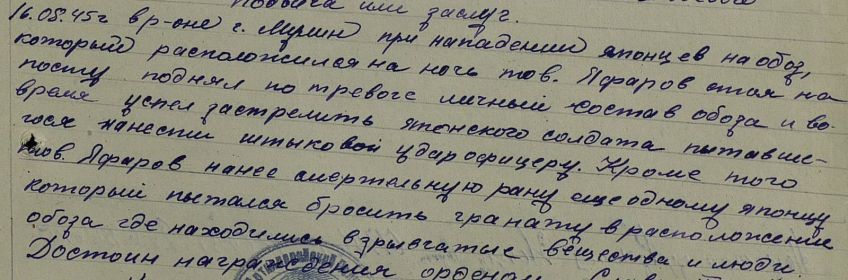 Подвига или заслуг.
16.08.45г в р-оне г. Мулин при нападении японцев на обоз,
который расположился на ночь тов. Яфаров стоя на
посту поднял по тревоге личный состав обоза и во-
время успел застрелить японского солдата пытавше-
гося нанести штыковой удар офицеру. Кроме того
тов. Яфаров нанес смертельную рану еще одному японцу
который пытался бросить гранату в расположение
обоза где находились взрывчатые вещества и люди
Достоин награждения орденом